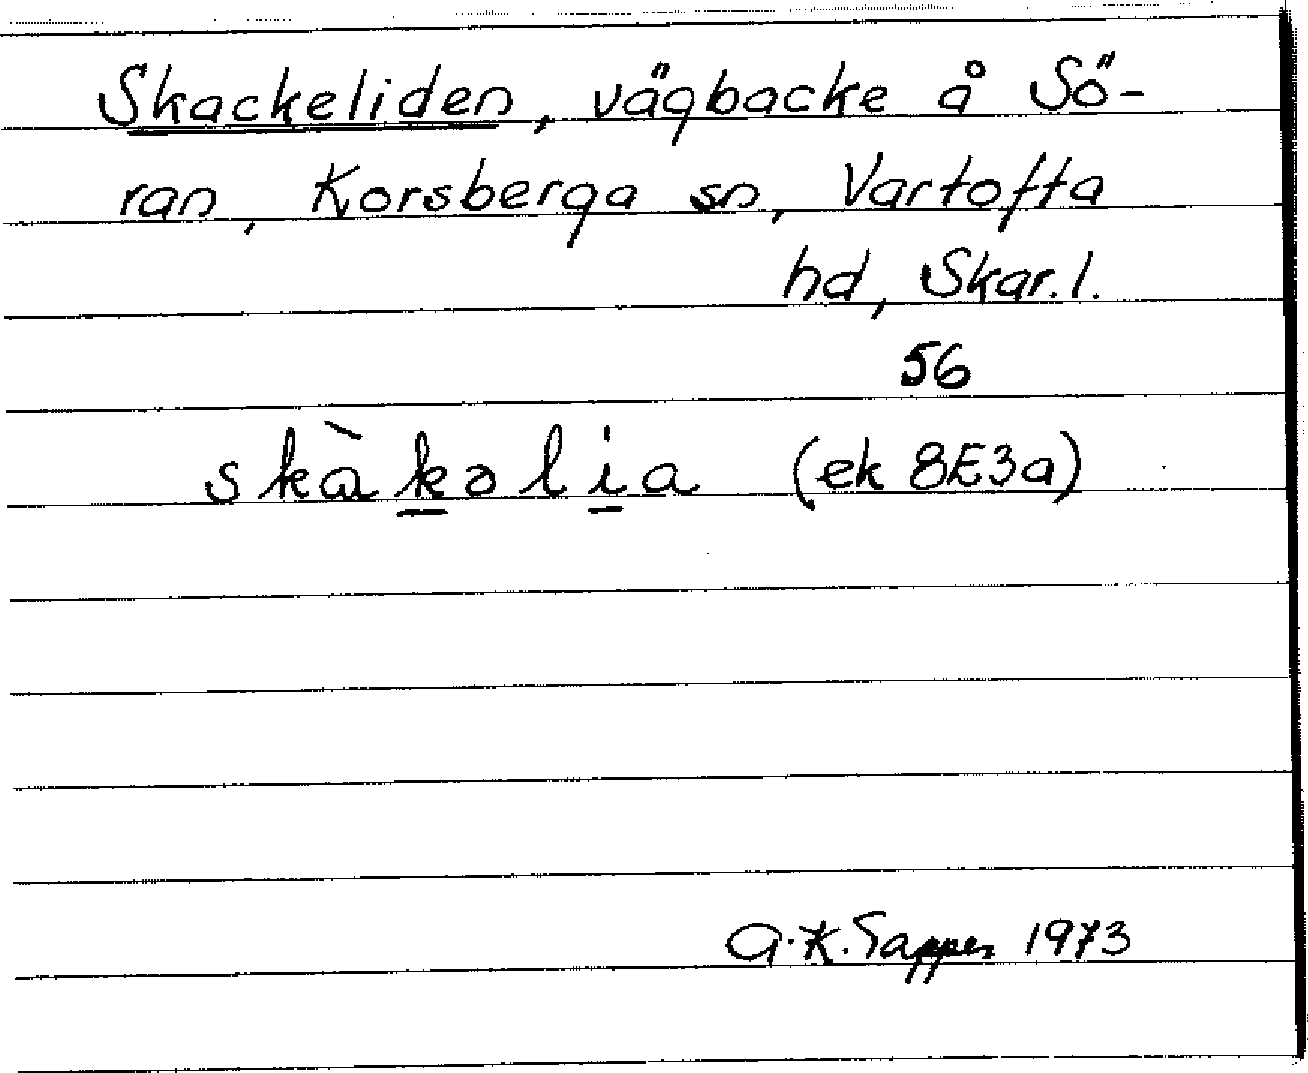 Skackeliden, vägbacke å Sö-
ran, Korsberga sn, Vartofta
hd, Skar. l.
56
skàkəlia (ek 8E3a)
G.K. Tapper 1973